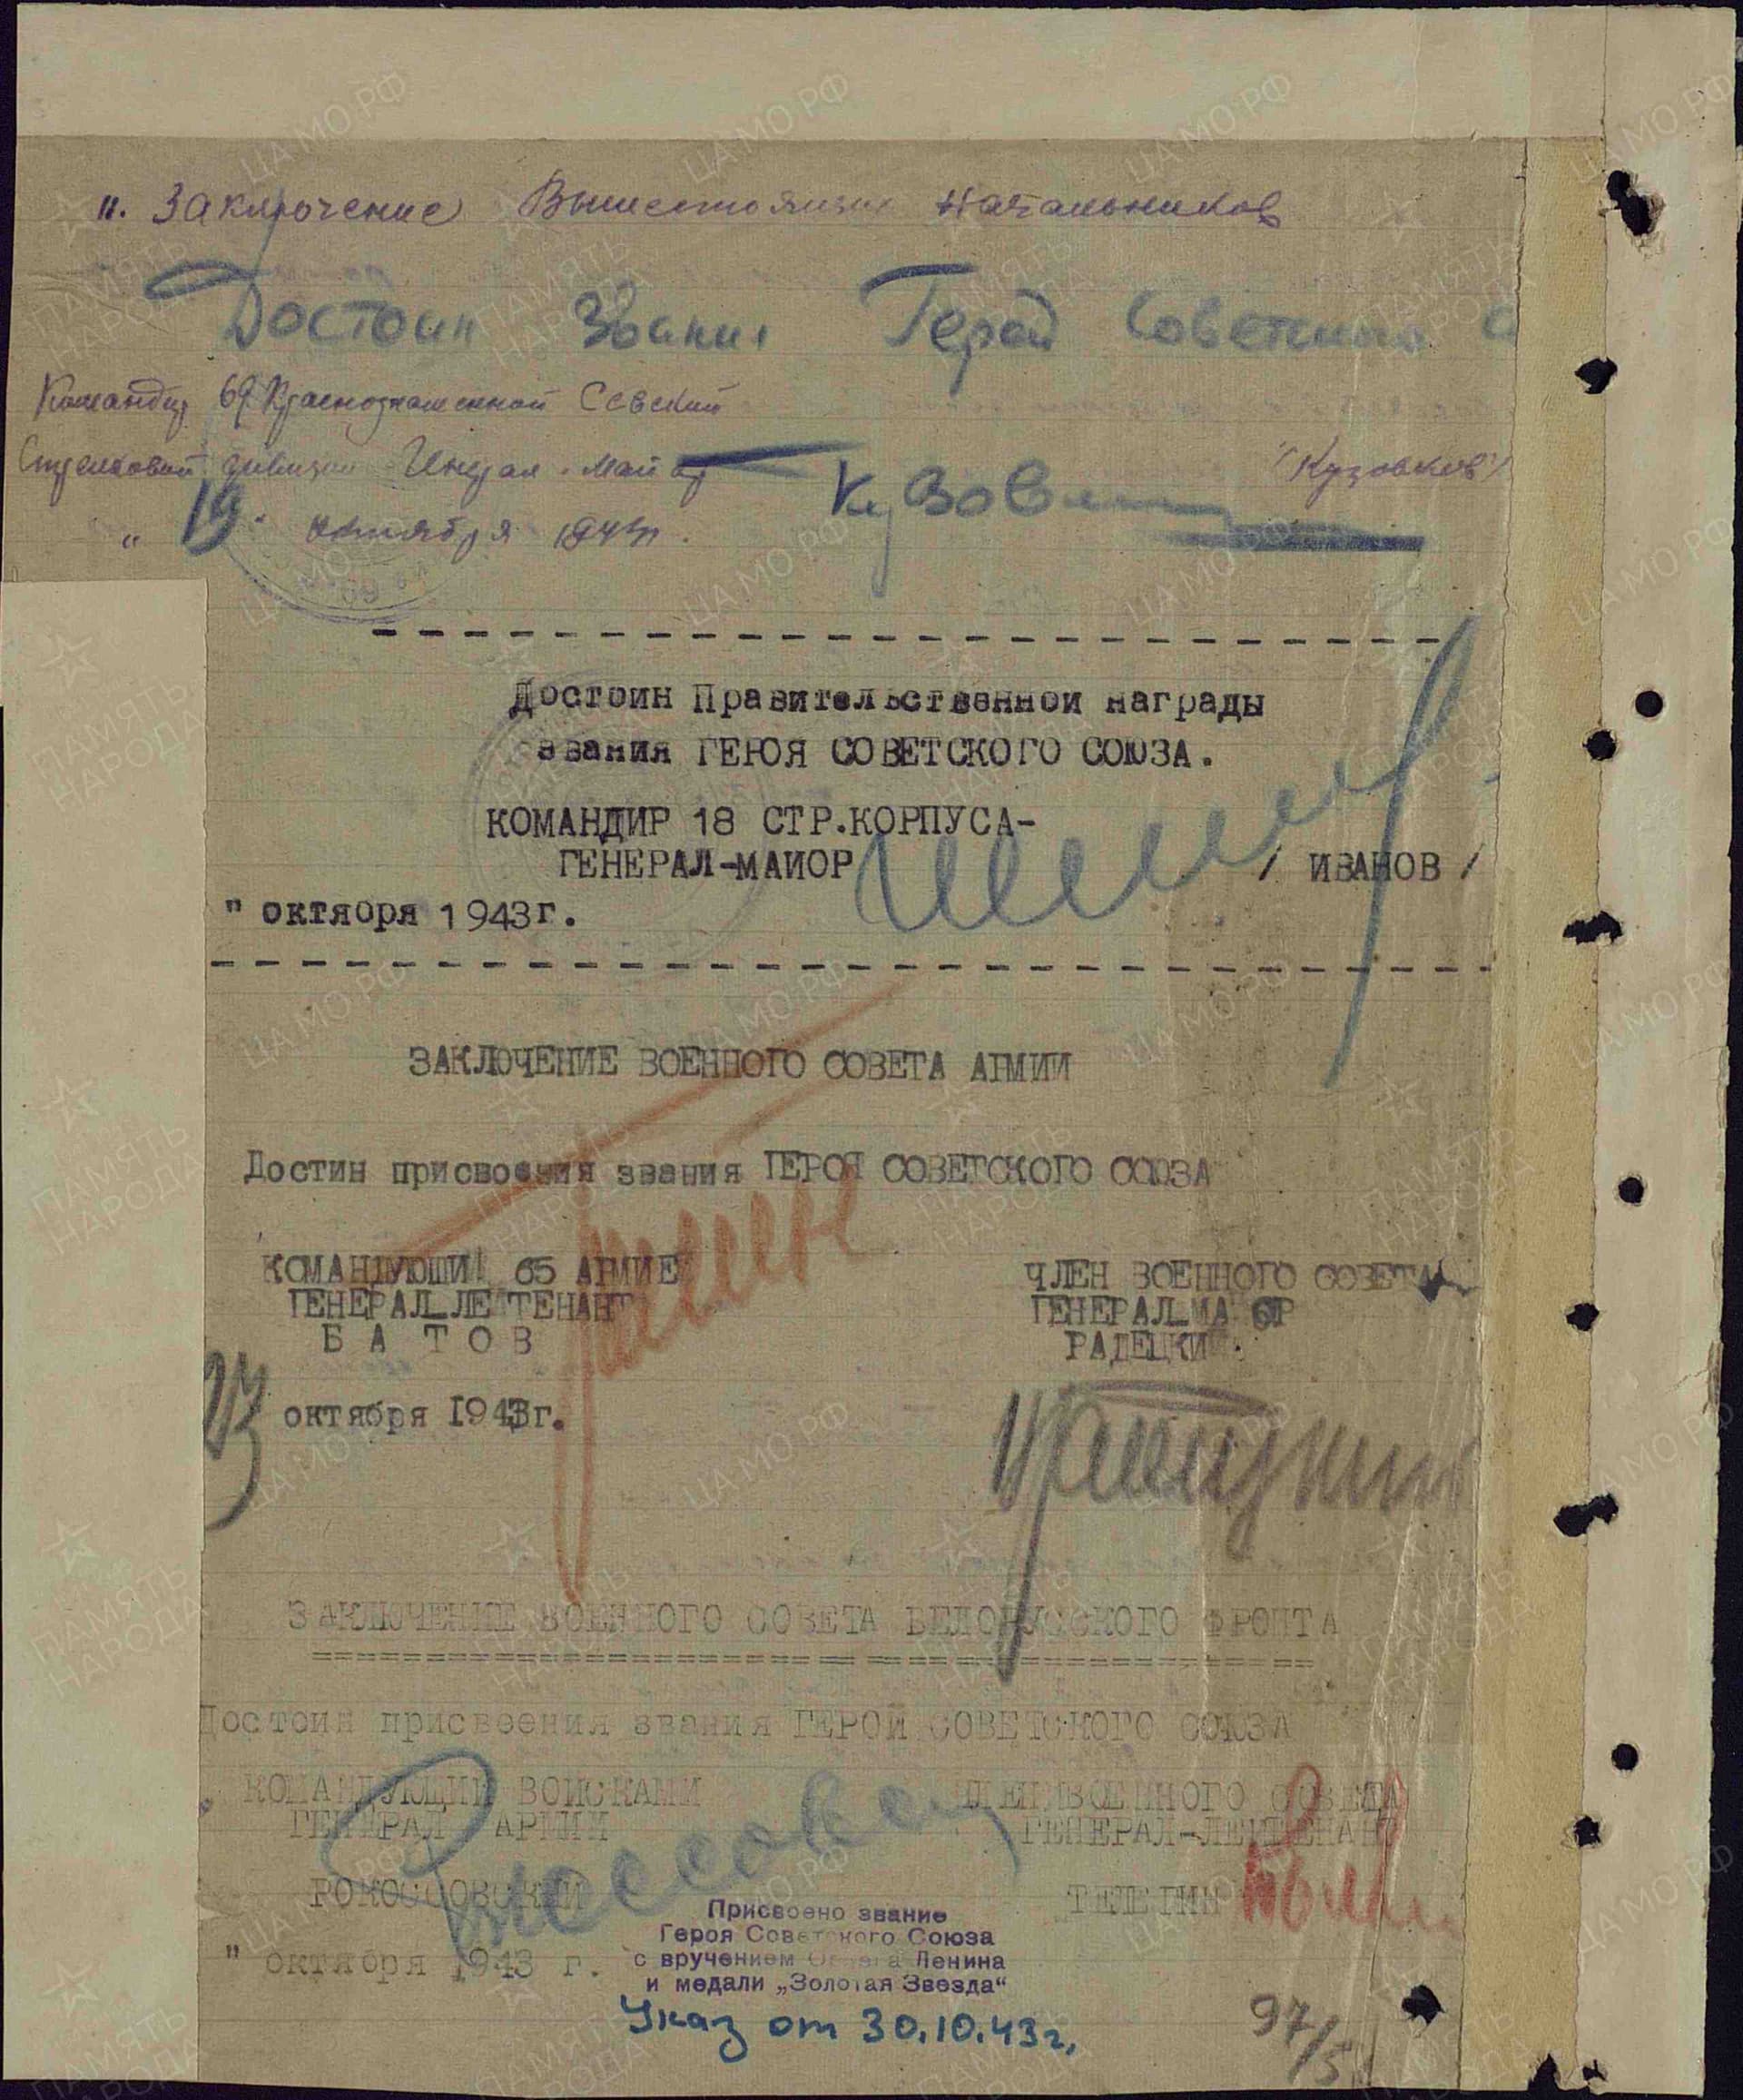 II. Заключение Вышестоящих Начальников
Достоин Звания Герой Советского С
Командир 69 Краснознаменной Севской
Стрелковой дивизии Генерал-Майор Кузовк /Кузовков/
" 19 " октября 1943 г.
Достоин Правительственной награды
звания ГЕРОЯ СОВЕТСКОГО СОЮЗА.
КОМАНДИР 18 СТР.КОРПУСА-
ГЕНЕРАЛ-МАИОР / ИВАНОВ /
" октября 1943г.
ЗАКЛЮЧЕНИЕ ВОЕННОГО СОВЕТА АРМИИ
Достин присвоения звания ГЕРОЯ СОВЕТСКОГО СОЮЗА
КОМАНДУЮЩИЙ 65 АРМИЕ ЧЛЕН ВОЕННОГО СОВЕТА
ГЕНЕРАЛ_ЛЕЙТЕНАНТ ГЕНЕРАЛ_МАЙОР
БАТОВ РАДЕЦКИЙ
23 октября 1943г.
ЗАКЛЮЧЕНИЕ ВОЕННОГО СОВЕТА БЕЛОРУССКОГО ФРОНТА
Достоин присвоения звания ГЕРОЙ СОВЕТСКОГО СОЮЗА
КОМАНДУЮЩИЙ ВОЙСКАМИ ЧЛЕН ВОЕННОГО СОВЕТА
ГЕНЕРАЛ АРМИИ ГЕНЕРАЛ-ЛЕЙТЕНАНТ
РОКОССОВСКИЙ ТЕЛЕГИН
" октября 1943 г.
Присвоено звание
Героя Советского Союза
с вручением Ордена Ленина
и медали „Золотая Звезда“
Указ от 30.10.43г.
97/5